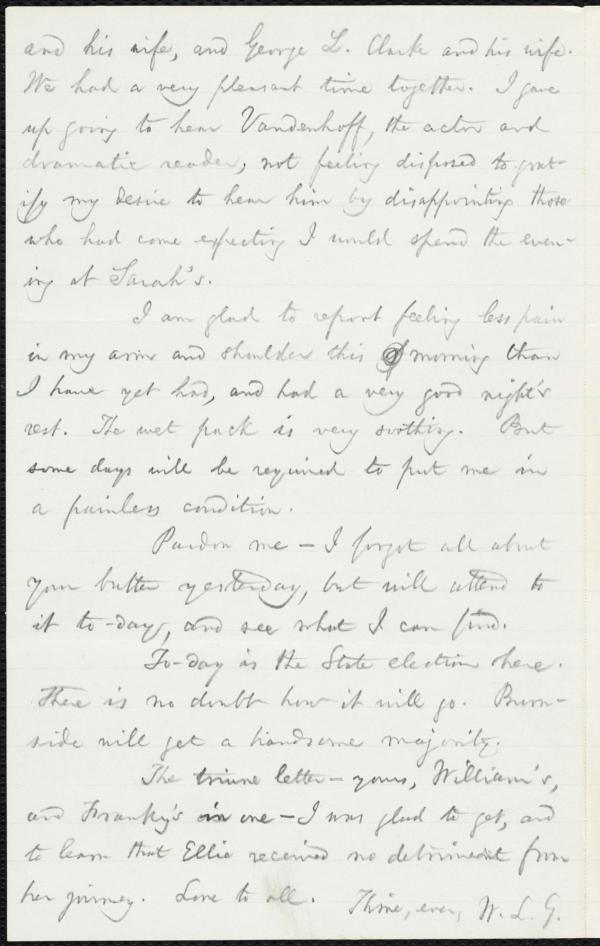 and his wife, and George L. Clarke and his wife.
We had a very pleasant time together. I gave
up going to hear Vandenhoff, the actor and
dramatic reader, not feeling disposed to grat-
ify my desire to hear him by disappointing those
who had come expecting I would spend the even-
ing at Sarah's.
I am glad to report feeling less pain
in my arm and shoulder this morning than
I have yet had, and had a very good night's
rest. The wet pack is very soothing. But
some days will be required to put me in
a painless condition.
Pardon me — I forgot all about
your butter yesterday, but will attend to
it to-day, and see what I can find.
To-day is the State election here.
There is no doubt how it will go. Burn-
side will get a handsome majority.
The triune letter — yours, William's,
and Franky's in one — I was glad to get, and
to learn that Ellie received no detriment from
her journey. Love to all. Thine, ever, W. L. G.